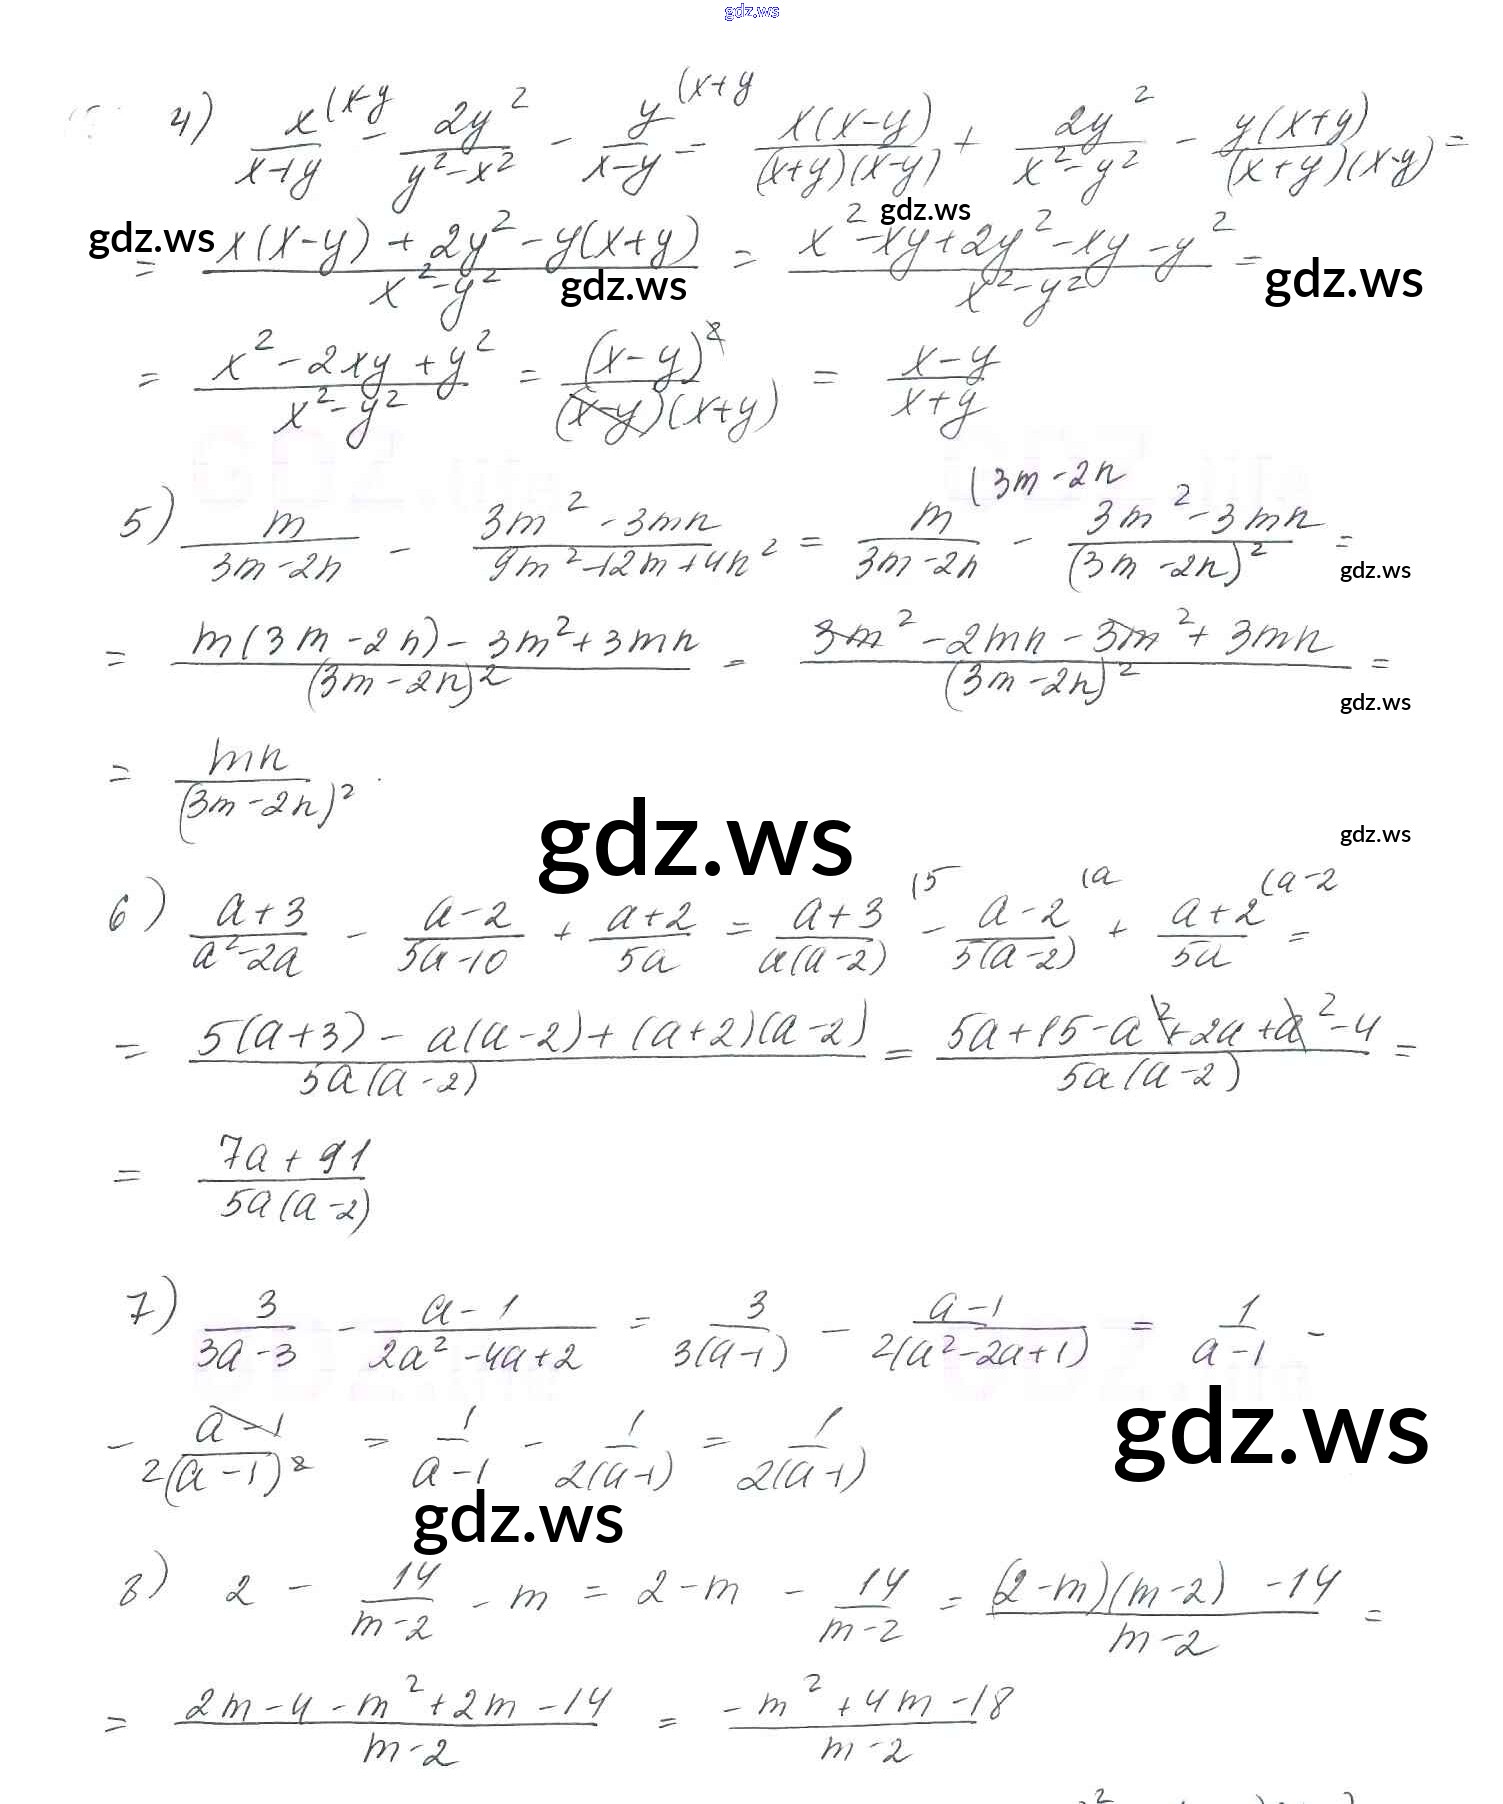 gdz.ws
4) x^(x-y/(x+y) - 2y²/(y²-x²) - y^(x+y/(x-y) = x(x-y)/((x+y)(x-y)) + 2y²/(x²-y²) - y(x+y)/((x+y)(x-y)) =
gdz.ws = (x(x-y) + 2y² - y(x+y))/(x²-y²) = (x²-xy+2y²-xy-y²)/(x²-y²) =
gdz.ws
gdz.ws
gdz.ws
= (x²-2xy+y²)/(x²-y²) = (x-y)²/((x-y)(x+y)) = (x-y)/(x+y)
5) m/(3m-2n) - (3m²-3mn)/(9m²-12m+4n²) = m^(3m-2n/(3m-2n) - (3m²-3mn)/(3m-2n)² =
gdz.ws
= (m(3m-2n) - 3m²+3mn)/(3m-2n)² = (3m²-2mn-3m²+3mn)/(3m-2n)² =
gdz.ws
= mn/(3m-2n)².
gdz.ws
gdz.ws
6) (a+3)/(a²-2a) - (a-2)/(5a-10) + (a+2)/5a = (a+3)^(5/(a(a-2)) - (a-2)^(a/(5(a-2)) + (a+2)^(a-2/5a =
= (5(a+3) - a(a-2) + (a+2)(a-2))/(5a(a-2)) = (5a+15-a²+2a+a²-4)/(5a(a-2)) =
= (7a+11)/(5a(a-2))
7) 3/(3a-3) - (a-1)/(2a²-4a+2) = 3/(3(a-1)) - (a-1)/(2(a²-2a+1)) = 1/(a-1) -
- (a-1)/(2(a-1)²) = 1/(a-1) - 1/(2(a-1)) = 1/(2(a-1))
gdz.ws
gdz.ws
8) 2 - 14/(m-2) - m = 2-m - 14/(m-2) = ((2-m)(m-2) - 14)/(m-2) =
= (2m-4-m²+2m-14)/(m-2) = (-m²+4m-18)/(m-2)